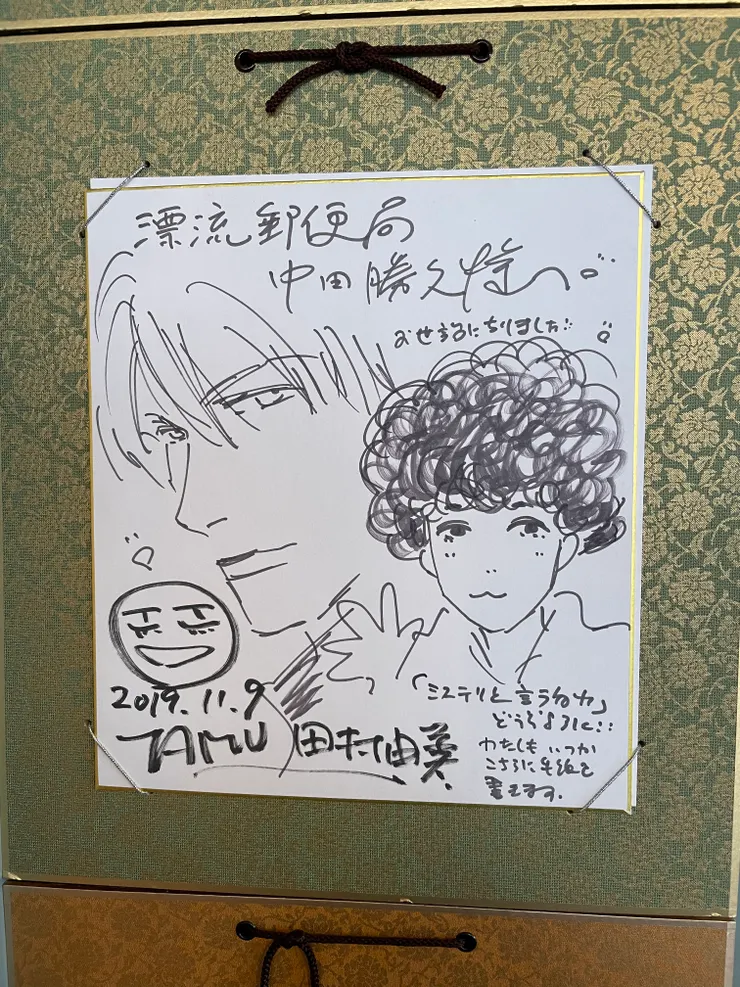 漂流郵便局
中田勝久様へ
お世話になりました
2019.11.9
TAMU 田村由美
「ミステリと言う勿れ」
どうぞよろしく
わたしもいつか
こちらに手紙を
書きます。